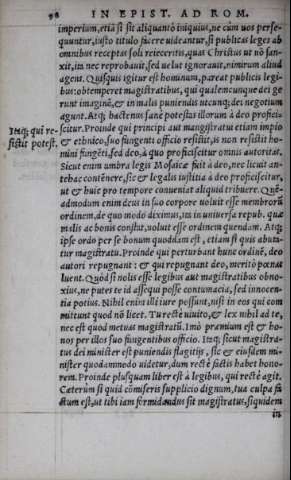 98 IN EPIST. AD ROM.
imperium, etiā si sit aliquanto iniquius, ne cum uos perse-
quuntur, iusto titulo facere uideantur, si publicas leges ab
omnibus receptas soli reieceritis, quas Christus ut nō san-
xit, ita nec reprobauit, sed uelut ignorauit, nimirum aliud
agens. Quisquis igitur est hominum, pareat publicis legi-
bus: obtemperet magistratibus, qui qualemcunque dei ge
runt imaginē, & in malis puniendis utcunq; dei negotium
agunt. Atq; hactenus sanè potestas illorum à deo profici-
Itaq; qui re-
sistit potest.
scitur. Proinde qui principi aut magistratui etiam impio
& ethnico, suo fungenti officio resistit, is non resistit ho-
mini fungēti, sed deo, à quo proficiscitur omnis autoritas.
Sicut enim umbra legis Mosaicæ fuit à deo, nec licuit an-
tebac contēnere, sic & legalis iustitia à deo proficiscitur,
ut & huic pro tempore conueniat aliquid tribuere. Quē-
admodum enim deus in suo corpore uoluit esse membrorū
ordinem, de quo modo diximus, ita in uniuersa repub. quæ
malis ac bonis constat, uoluit esse ordinem quendam. Atq;
ipse ordo per se bonum quoddam est, etiam si quis abuta-
tur magistratu. Proinde qui perturbant hunc ordinē, deo
autori repugnant: & qui repugnant deo, meritò pœnas
luent. Quod si nolis esse legibus aut magistratibus obno-
xius, ne putes te id assequi posse contumacia, sed innocen-
tia potius. Nihil enim illi iure possunt, nisi in eos qui com
mittunt quod nō licet. Tu rectè uiuito, & lex nihil ad te,
nec est quod metuas magistratū. Imò præmium est & ho-
nos per illos suo fungentibus officio. Itaq; sicut magistra-
tus dei minister est puniendis flagitijs, sic & eiusdem mi-
nister quodammodo uidetur, dum rectè factis habet hono-
rem. Proinde plusquam liber est à legibus, qui rectè agit.
Cæterùm si quid cōmiseris supplicio dignum, tua culpa fa
ctum est, ut tibi iam formidandus sit magistratus, siquidem
in